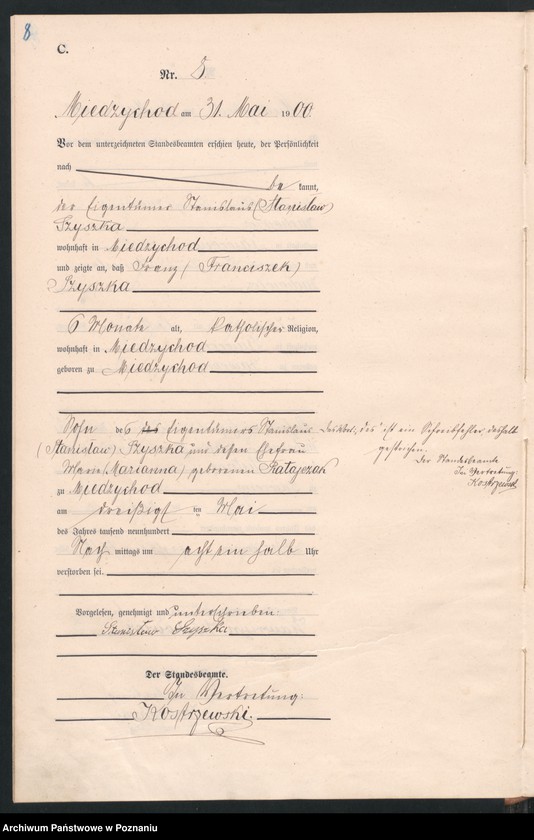 8
C.
Nr. 8.
Miedzychod am 31. Mai 1900.
Vor dem unterzeichneten Standesbeamten erschien heute, der Persönlichkeit
nach
be kannt,
der Eigentümer Stanislaus (Stanislaw)
Szyszka
wohnhaft in Miedzychod
und zeigte an, daß Franz (Franciszek)
Szyszka
6 Monate alt, katholischer Religion,
wohnhaft in Miedzychod
geboren zu Miedzychod
Sohn des des Eigentümers Stanislaus
(Stanislaw) Szyszka und dessen Ehefrau
Marie (Marianna) geborenen Ratajczak
zu Miedzychod
am dreißigsten Mai
des Jahres tausend neunhundert
Nach mittags um acht ein halb Uhr
verstorben sei.
Vorgelesen, genehmigt und unterschrieben:
Stanislaw Szyszka
Der Standesbeamte.
In Vertretung:
Kostrzewski.
"des" ist ein Schreibfehler, deshalb
gestrichen.
Der Standesbeamte
In Vertretung
Kostrzewski
Archiwum Państwowe w Poznaniu